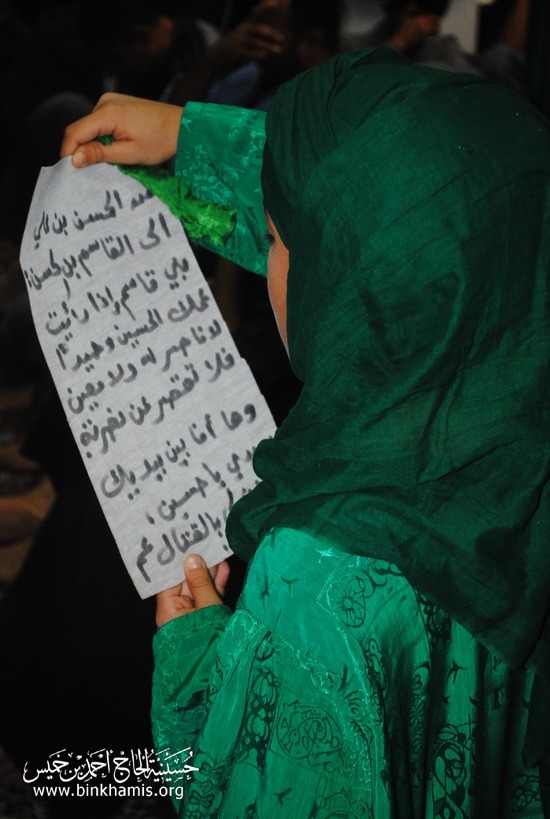 الحسن بن علي
الى القاسم بن الحسن:
بني قاسم إذا رأيت
عمك الحسين وحيداً
لا ناصر له ولا معين
فلا تقصر عن نصرته
وها أنا بين يديك
يا حسين،
بالقتال عم
حسينية الحاج أحمد بن خميس
www.binkhamis.org